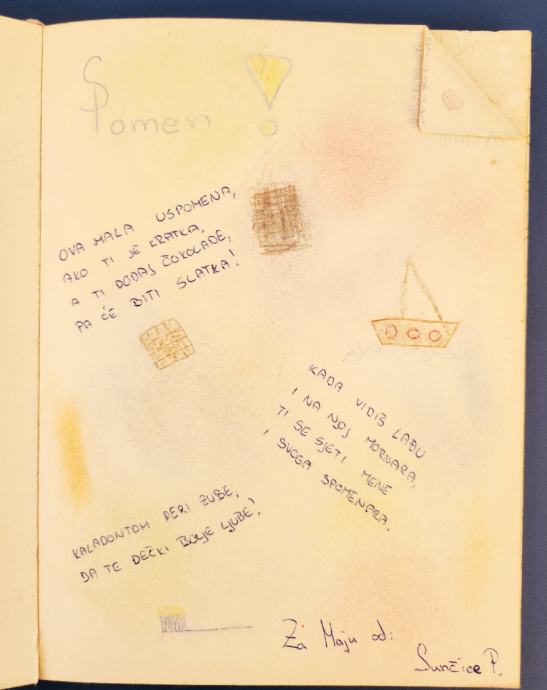 Spomen!
OVA MALA USPOMENA,
AKO TI JE KRATKA,
A TI DODAJ ČOKOLADE,
PA ĆE BITI SLATKA!
KADA VIDIŠ LAĐU
I NA NJOJ MORNARA,
TI SE SJETI MENE
I SVOGA SPOMENARA.
KALADONTOM PERI ZUBE,
DA TE DEČKI BOLJE LJUBE!
Za Maju od:
Sunčice P.